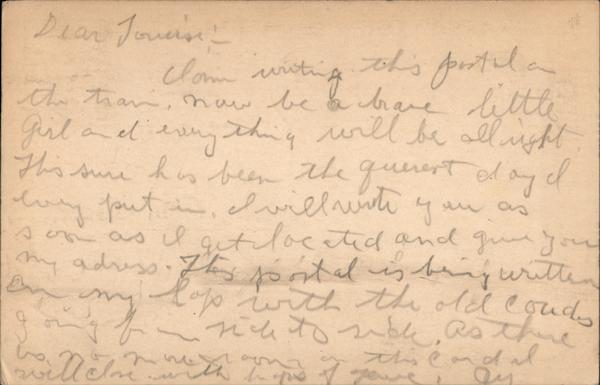 Dear Louise:-
I am writing this postal on
the train. now be a brave little
Girl and everything will be allright.
This sure has been the querest day I
every put in. I will write you as
soon as I get located and give you
my adress. This postal is being written
on my lap with the old coach
going from side to side. As there
is no more room on this card I
will close with hops of